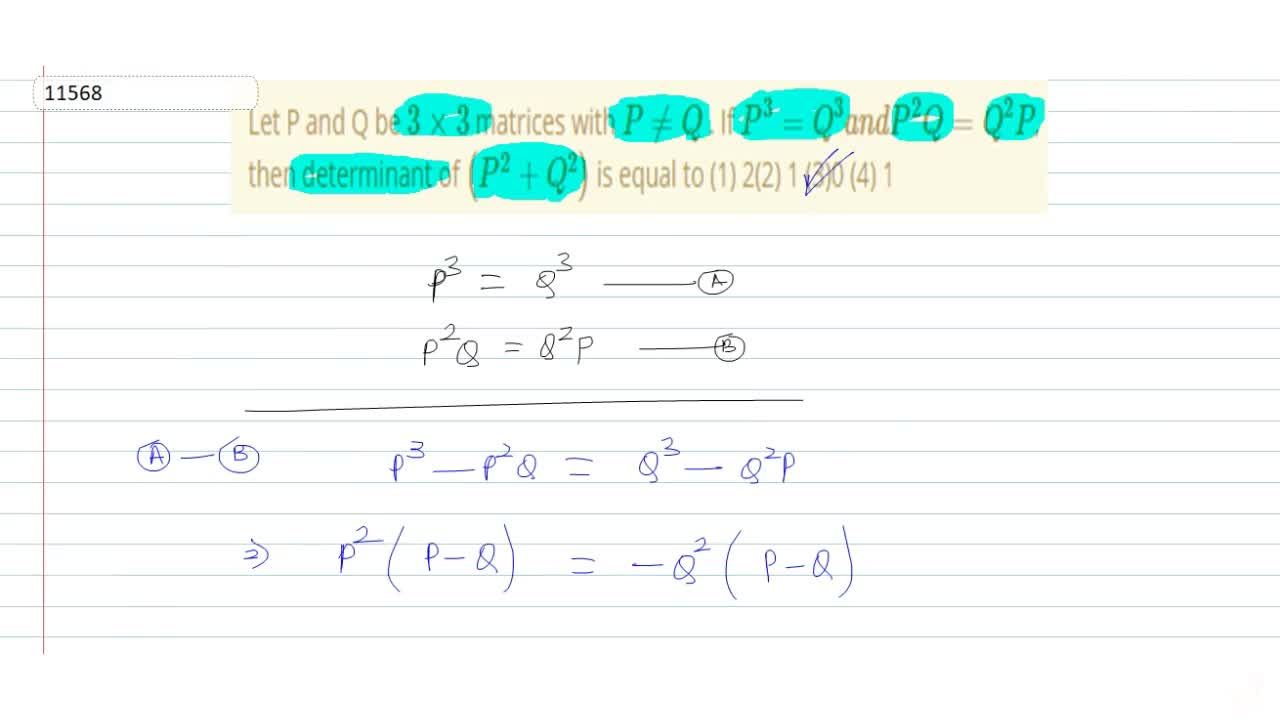 11568
Let P and Q be 3 × 3 matrices with P ≠ Q. If P³ = Q³ and P²Q = Q²P,
then determinant of (P² + Q²) is equal to (1) 2(2) 1 (3)0 (4) 1
P³ = Q³ —— Ⓐ
P²Q = Q²P —— Ⓑ
Ⓐ — Ⓑ P³ — P²Q = Q³ — Q²P
⇒ P² ( P - Q ) = - Q² ( P - Q )